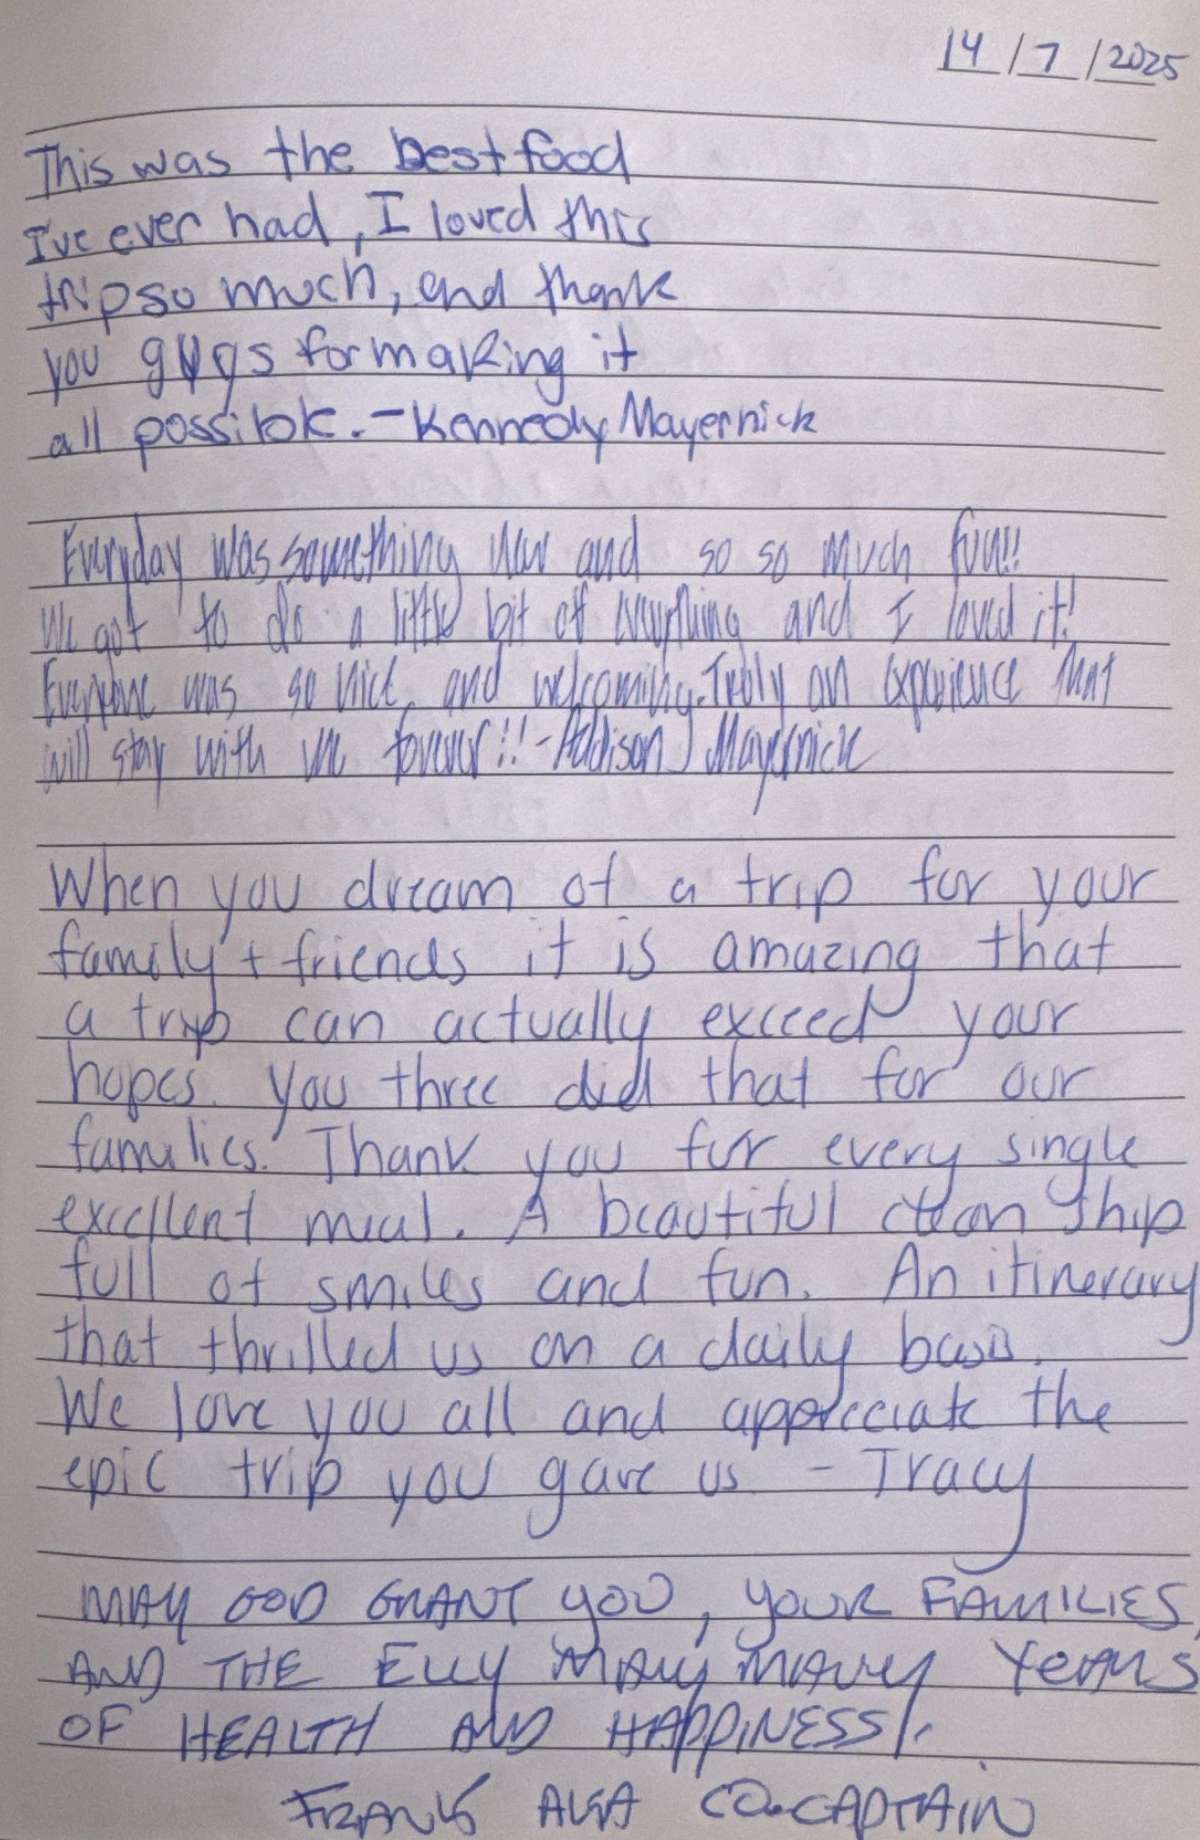 14/7/2025
This was the best food
I've ever had, I loved this
trip so much, and thank
you guys for making it
all possible. - Kennedy Mayernick
Everyday was something new and so so much fun!!
We got to do a little bit of everything and I loved it!
Everyone was so nice, and welcoming. Truly an experience that
will stay with me forever!! - Addison J Mayernick
When you dream of a trip for your
family + friends it is amazing that
a trip can actually exceed your
hopes. You three did that for our
families. Thank you for every single
excellent meal. A beautiful clean ship
full of smiles and fun. An itinerary
that thrilled us on a daily basis.
We love you all and appreciate the
epic trip you gave us - Tracy
MAY GOD GRANT YOU, YOUR FAMILIES,
AND THE ELLY MANY MANY YEARS
OF HEALTH AND HAPPINESS!
FRANK AKA CO-CAPTAIN